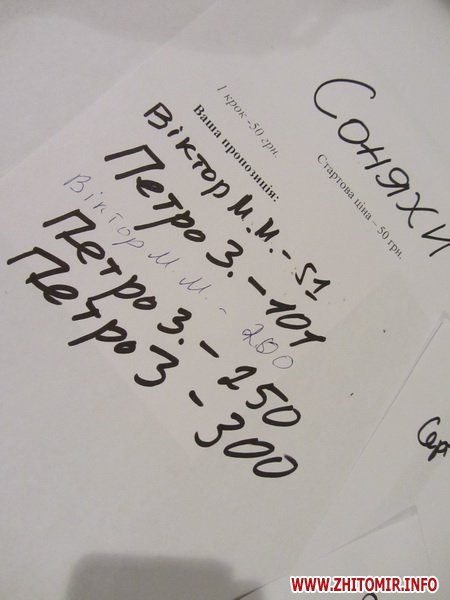 Соняхи
Стартова ціна – 50 грн.
1 крок -50 грн.
Ваша пропозиція:
Віктор М.М. - 51
Петро З. - 101
Віктор М.М. - 200
Петро З. - 250
Петро З - 300
Сер
WWW.ZHITOMIR.INFO